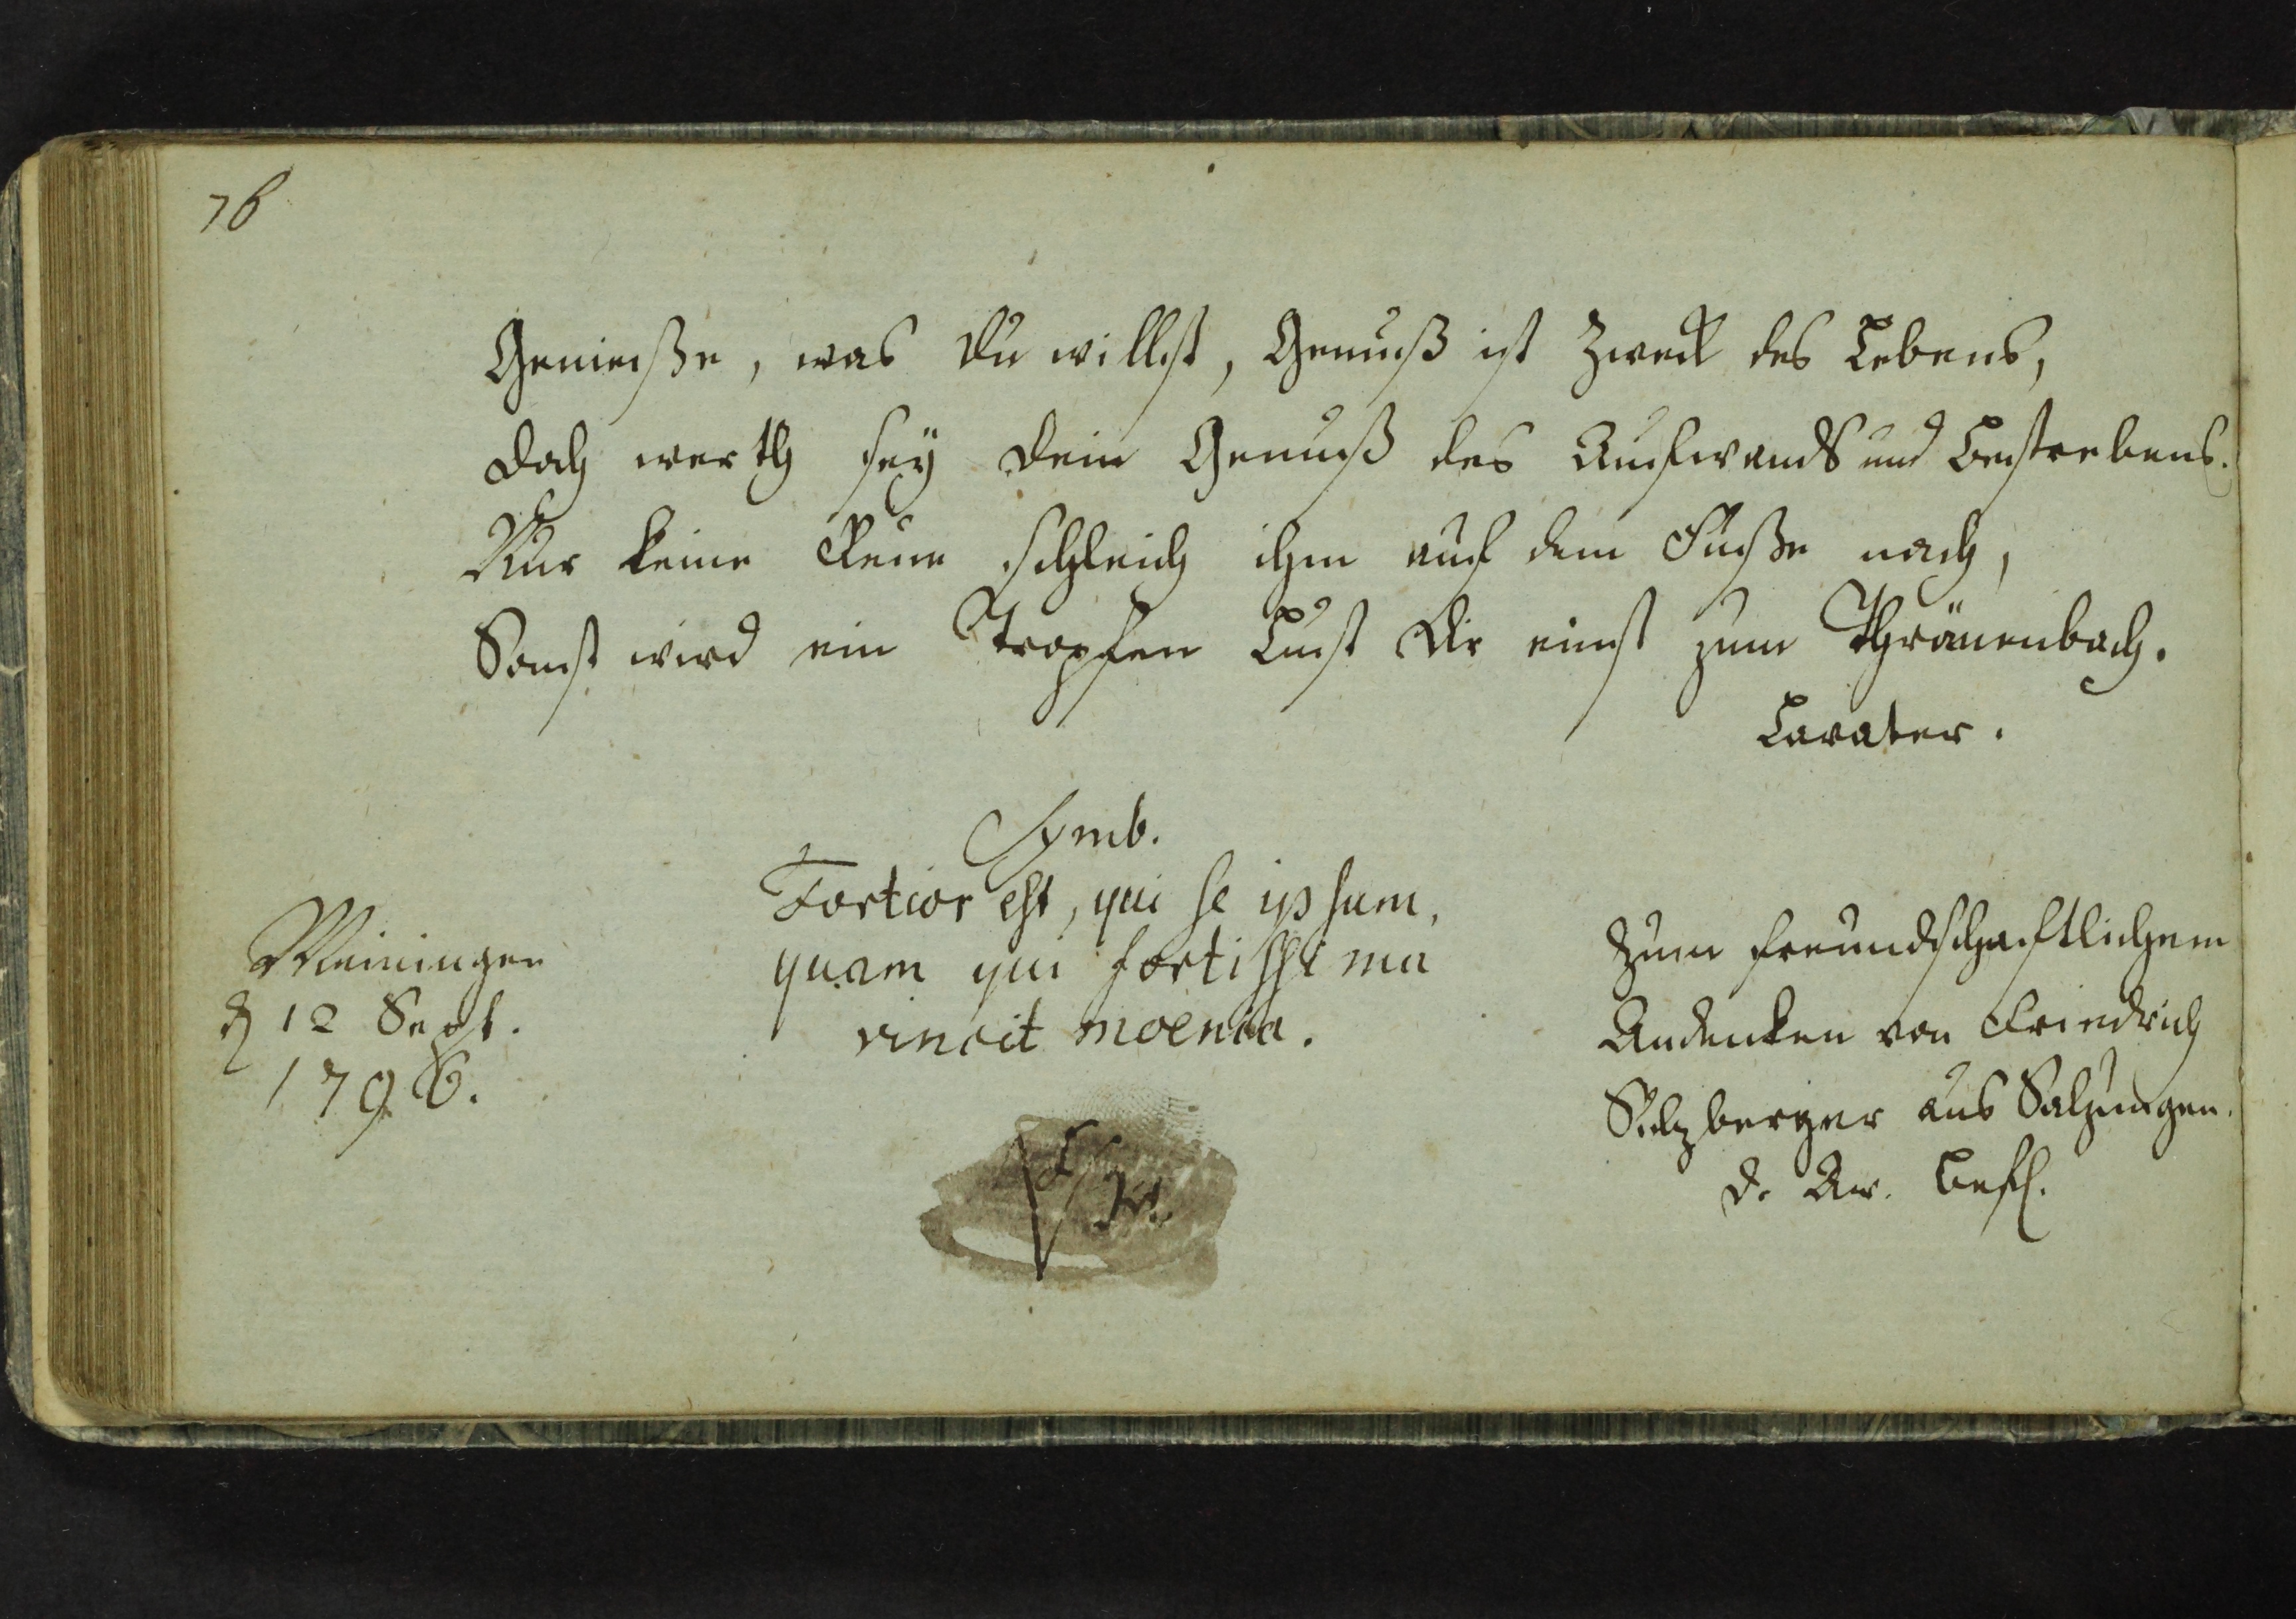 76
Genieße, was Du willst, Genuß ist Zweck des Lebens,
doch werth sey dein Genuß des Aufwands und Bestrebens.
Nur keine Reue schleich ihm auf dem Fuße nach,
Sonst wird ein Tropfen Lust dir einst zum Thränenbach.
Lavater.
Symb.
Fortior est, qui se ipsum,
quam qui fortissima
vincit moenia.
Meiningen
d 12 Sept.
1796.
Zum freundschaftlichem
Andenken von Friedrich
Sulzberger aus Salzungen.
d. Befl.